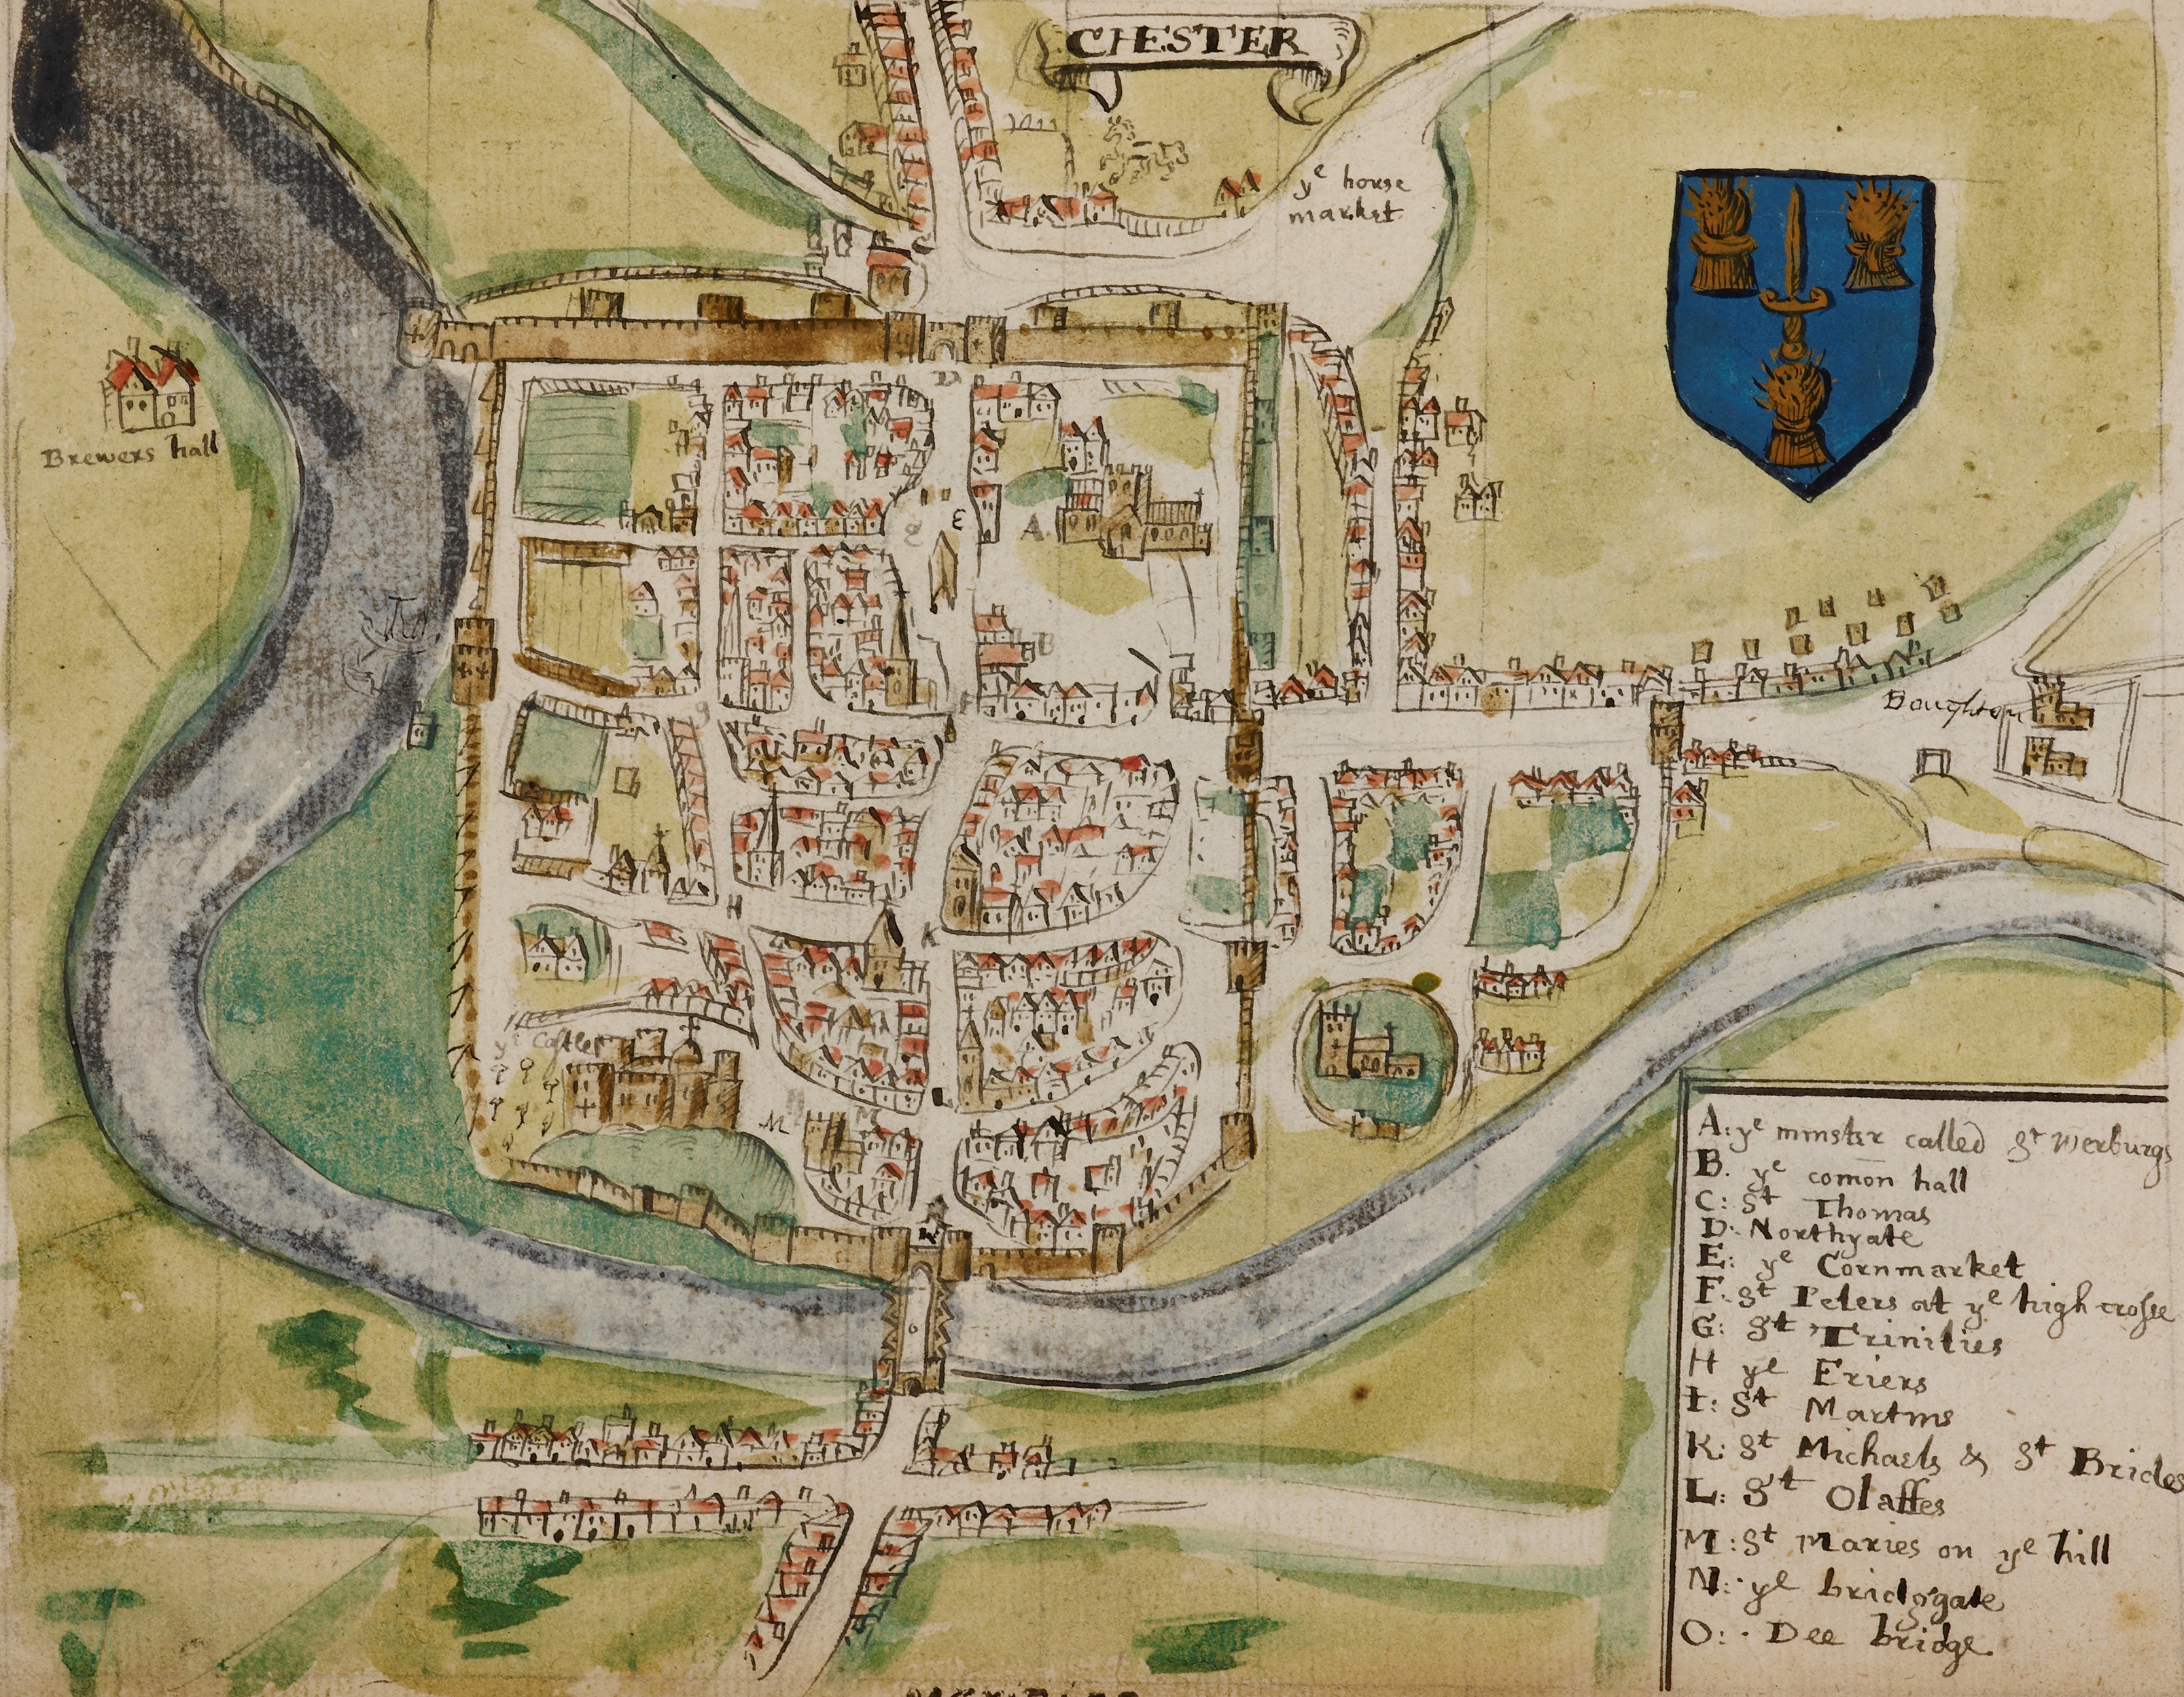 CHESTER
yᵉ horse
market
Brewers hall
D
E
A
B
F
Boughton
H
K
yᵉ Castle
M
A: yᵉ minster called Sᵗ Werburgs
B. yᵉ comōn hall
C: Sᵗ Thomas
D: Northgate
E: yᵉ Cornmarket
F: Sᵗ Peters at yᵉ high crosse
G: Sᵗ Trinities
H yᵉ Friers
I: Sᵗ Martins
K: Sᵗ Michaels & Sᵗ Brides
L: Sᵗ Olaffes
M: Sᵗ Maries on yᵉ hill
N: yᵉ bridggate
O: Dee bridge